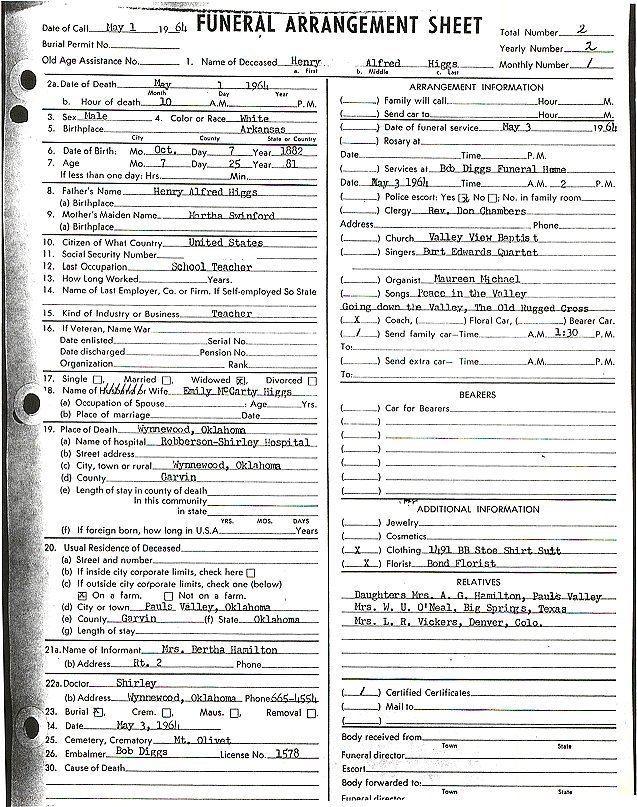 FUNERAL ARRANGEMENT SHEET
Date of Call May 1 1964
Burial Permit No.
Old Age Assistance No.
Total Number 2
Yearly Number 2
Monthly Number 1
1. Name of Deceased Henry Alfred Higgs
a. First b. Middle c. Last
2a. Date of Death May 1 1964
Month Day Year
b. Hour of death 10 A.M. P.M.
3. Sex Male 4. Color or Race White
5. Birthplace Arkansas
City County State or Country
6. Date of Birth: Mo. Oct. Day 7 Year 1882
7. Age Mo. 7 Day 25 Year 81
If less than one day: Hrs. Min.
8. Father's Name Henry Alfred Higgs
(a) Birthplace
9. Mother's Maiden Name Martha Swinford
(a) Birthplace
10. Citizen of What Country United States
11. Social Security Number
12. Last Occupation School Teacher
13. How Long Worked Years.
14. Name of Last Employer, Co. or Firm. If Self-employed So State
15. Kind of Industry or Business Teacher
16. If Veteran, Name War
Date enlisted Serial No.
Date discharged Pension No.
Organization Rank
17. Single Married Widowed X Divorced
18. Name of Husband or Wife Emily McCarty Higgs
(a) Occupation of Spouse : Age Yrs.
(b) Place of marriage Date
19. Place of Death Wynnewood, Oklahoma
(a) Name of hospital Robberson-Shirley Hospital
(b) Street address
(c) City, town or rural Wynnewood, Oklahoma
(d) County Garvin
(e) Length of stay in county of death
In this community
in state
YRS. MOS. DAYS
(f) If foreign born, how long in U.S.A. Years
20. Usual Residence of Deceased
(a) Street and number
(b) If inside city corporate limits, check here
(c) If outside city corporate limits, check one (below)
X On a farm. Not on a farm.
(d) City or town Pauls Valley, Oklahoma
(e) County Garvin (f) State Oklahoma
(g) Length of stay
21a. Name of Informant Mrs. Bertha Hamilton
(b) Address Rt. 2 Phone
22a. Doctor Shirley
(b) Address Wynnewood, Oklahoma Phone 665-4554
23. Burial X, Crem. Maus. Removal
24. Date May 3, 1964
25. Cemetery, Crematory Mt. Olivet
26. Embalmer Bob Diggs License No. 1578
30. Cause of Death
ARRANGEMENT INFORMATION
( ) Family will call Hour M.
( ) Send car to Hour M.
( ) Date of funeral service May 3 1964
( ) Rosary at
Date Time P.M.
( ) Services at Bob Diggs Funeral Home
Date May 3 1964 Time A.M. 2 P.M.
( ) Police escort: Yes X No ; No. in family room
( ) Clergy Rev. Don Chambers
Address Phone
( ) Church Valley View Baptist
( ) Singers Burt Edwards Quartet
( ) Organist Maureen Michael
( ) Songs Peace in the Valley
Going down the Valley, The Old Rugged Cross
( X ) Coach, ( ) Floral Car, ( ) Bearer Car.
( / ) Send family car—Time A.M. 1:30 P.M.
To:
( ) Send extra car—Time A.M. P.M.
To:
BEARERS
( ) Car for Bearers
( )
( )
( )
( )
( )
( )
ADDITIONAL INFORMATION
( ) Jewelry
( ) Cosmetics
( X ) Clothing 1491 BB Stoe Shirt Suit
( X ) Florist Bond Florist
RELATIVES
Daughters Mrs. A. G. Hamilton, Pauls Valley
Mrs. W. U. O'Neal, Big Springs, Texas
Mrs. L. R. Vickers, Denver, Colo.
( / ) Certified Certificates
( ) Mail to
( )
Body received from
Town State
Funeral director
Escort
Body forwarded to:
Town State
Funeral director